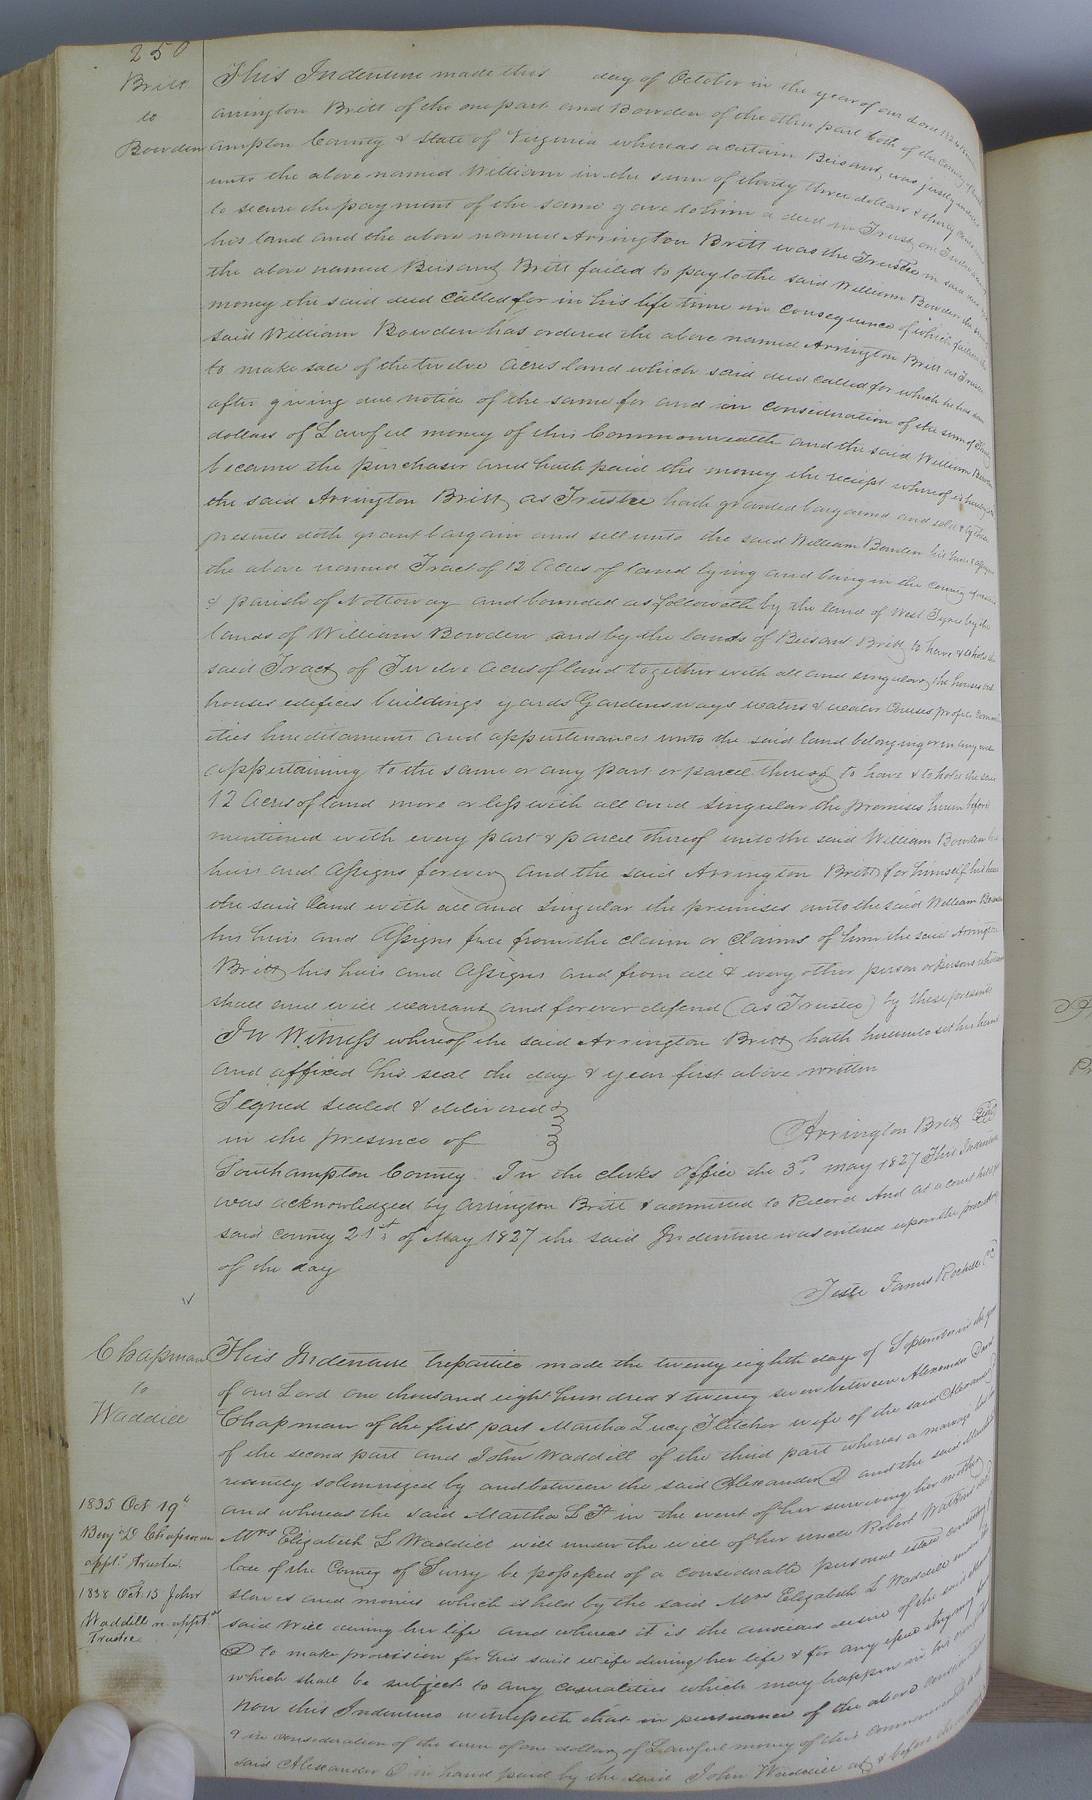 250
Britt
to
Bowden
This Indenture made this day of October in the year of our Lord 1826 between
arrington Britt of the one part and Bowden of the other part both of the County of South
ampton County & State of Virginia whereas a certain Beisant, was justly indebted
unto the above named William in the sum of thirty three dollars & thirty
to secure the payment of the same gave to him a deed in Trust on Twelve acres
his land and the above named Arrington Britt was the Trustee in said deed
the above named Beisant Britt failed to pay to the said William Bowden the sum of
money the said deed Called for in his life time in Consequence of which failure the
said William Bowden has ordered the above named Arrington Britt as Trustee
to make sale of the twelve acres land which said deed Called for which he has done
after giving due notice of the same for and in Consideration of the sum of
dollars of Lawful money of this Commonwealth and the said William Bowden
became the purchaser and hath paid the money the receipt whereof is hereby
the said Arrington Britt as Trustee hath granted bargained and sold & by these
presents doth grant bargain and sell unto the said William Bowden his heirs & assigns
the above named Tract of 12 acres of land lying and being in the County
& parish of Nottoway and bounded as followeth by the land of West Tynes by the
lands of William Bowden and by the lands of Beisant Britt to have & to hold the
said Tract of Twelve acres of land together with all and singular the houses out
houses edifices buildings yards Gardens ways waters & water Courses profits Commod
ities hereditaments and appurtenances unto the said land belonging or in any wise
appertaining to the same or any part or parcel thereof to have & to hold the said
12 Acres of land more or less with all and singular the premises herein before
mentioned with every part & parcel thereof unto the said William Bowden his
heirs and assigns forever and the said Arrington Britt for himself his heirs
the said Land with all and singular the premises unto the said William Bowden
his heirs and assigns free from the claim or claims of him the said Arrington
Britt his heirs and assigns and from all & every other person or persons whatsoever
shall and will warrant and forever defend (as Trustee) by these presents
In Witness whereof the said Arrington Britt hath hereunto set his hand
and affixed his seal the day & year first above written
Signed sealed & delivered
in the presence of
Arrington Britt Seal
Southampton County. In the clerks Office the 3d. may 1827 This Indenture
was acknowledged by Arrington Britt & admitted to Record And at a court held
said county 21st of May 1827 the said Indenture was entered upon the proceedings
of the day
Teste James Rochelle
Chapman
to
Waddill
This Indenture trepartite made the twenty eighth day of September in the year
of our Lord one thousand eight hundred & twenty seven between Alexander
Chapman of the first part Martha Lucy Fletcher wife of the said Alexander D
of the second part and John Waddill of the third part whereas a marriage hath
recently solemnized by and between the said Alexander D and the said Martha
and whereas the said Martha L F in the event of her surviving her mother
Mrs Elizabeth L Waddill will under the will of her uncle Robert Watkins
late of the County of Surry be possessed of a considerable personal estate consisting
slaves and monies which is held by the said Mrs Elizabeth L Waddill under
said Will during her life and whereas it is the anxious desire of the said
D to make provision for his said wife during her life & for any issue they may
which shall be subject to any casualities which may happen in his
Now this Indenture witnesseth that in pursuance of the above
& in consideration of the sum of one dollar of Lawful money of this Commonwealth
said Alexander D in hand paid by the said John Waddill at & before
1835 Oct 19th
Benj. D Chapman
appt. trustee.
1838 Oct. 15 John
Waddill re apptd
Trustee